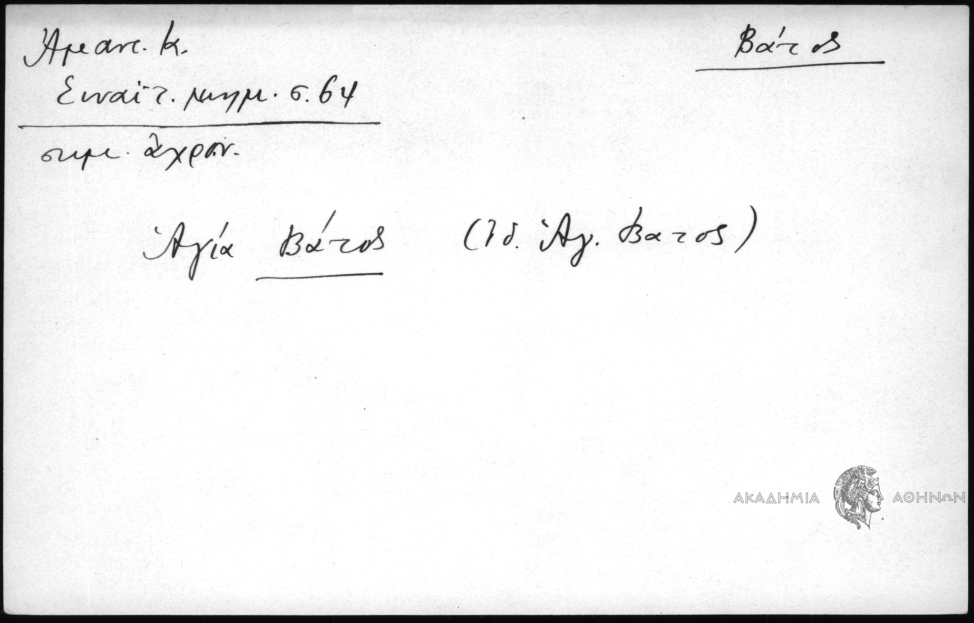 Ἀμαντ. Κ.
Βάτος
Σιναϊτ. μνημ. σ. 64
σημ. ἄχρον.
Ἁγία Βάτος (ἰδ. Ἁγ. Βατος)
ΑΚΑΔΗΜΙΑ ΑΘΗΝΩΝ